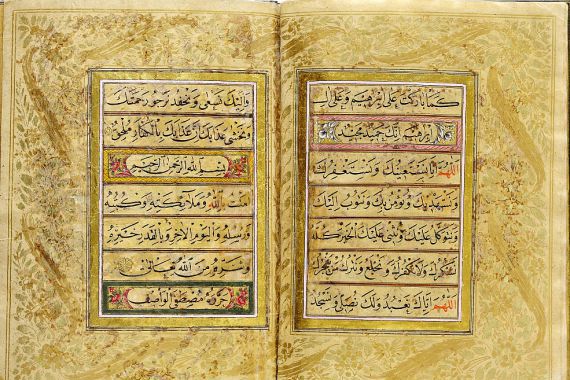 كما باركت على ابرهيم وعلى ال
ابرهيم انك حميد مجيد
اللهم انا نستعينك ونستغفرك
ونستهديك ونؤمن بك ونتوب اليك
ونتوكل عليك ونثني عليك الخير كله
نشكرك ولا نكفرك ونخلع ونترك من يفجرك
اللهم اياك نعبد ولك نصلي ونسجد
واليك نسعى ونحفد نرجو رحمتك
ونخشى عذابك ان عذابك بالكفار ملحق
بسم الله الرحمن الرحيم
امنت بالله وملائكته وكتبه
ورسله واليوم الاخر وبالقدر خيره
وشره من الله تعالى
حرره مصطفى الواصف